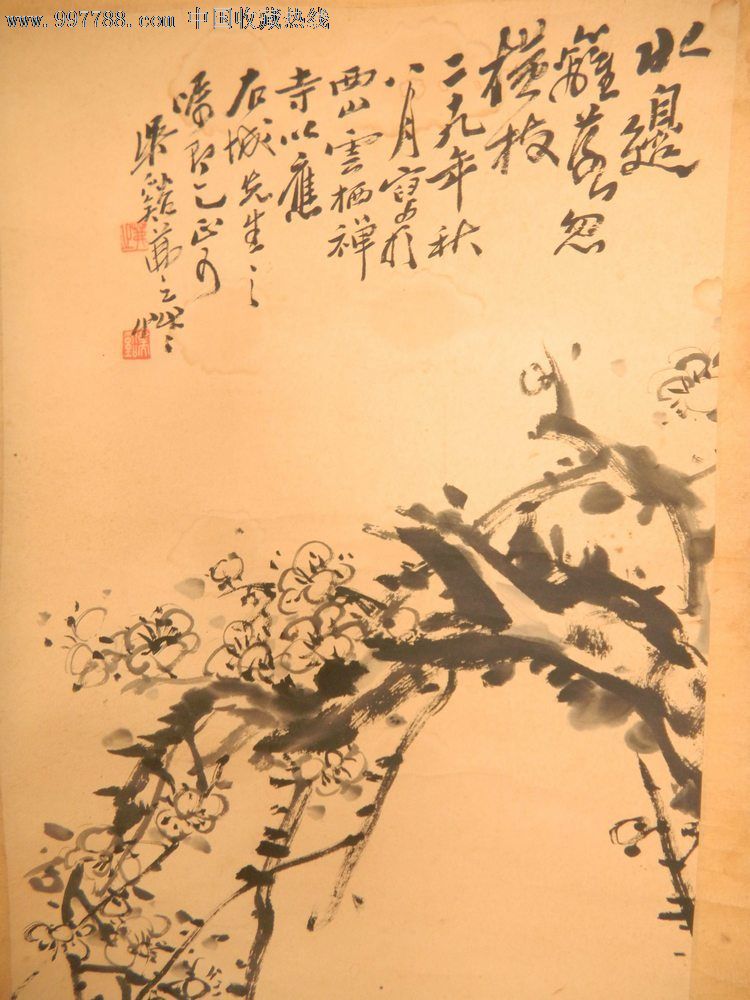 www.997788.com 中国收藏热线
水邊
籬落忽
橫枝
二九年秋
八月寫於
西山雲栖禅
寺以應
石城先生之
嘱即乞正可
吴